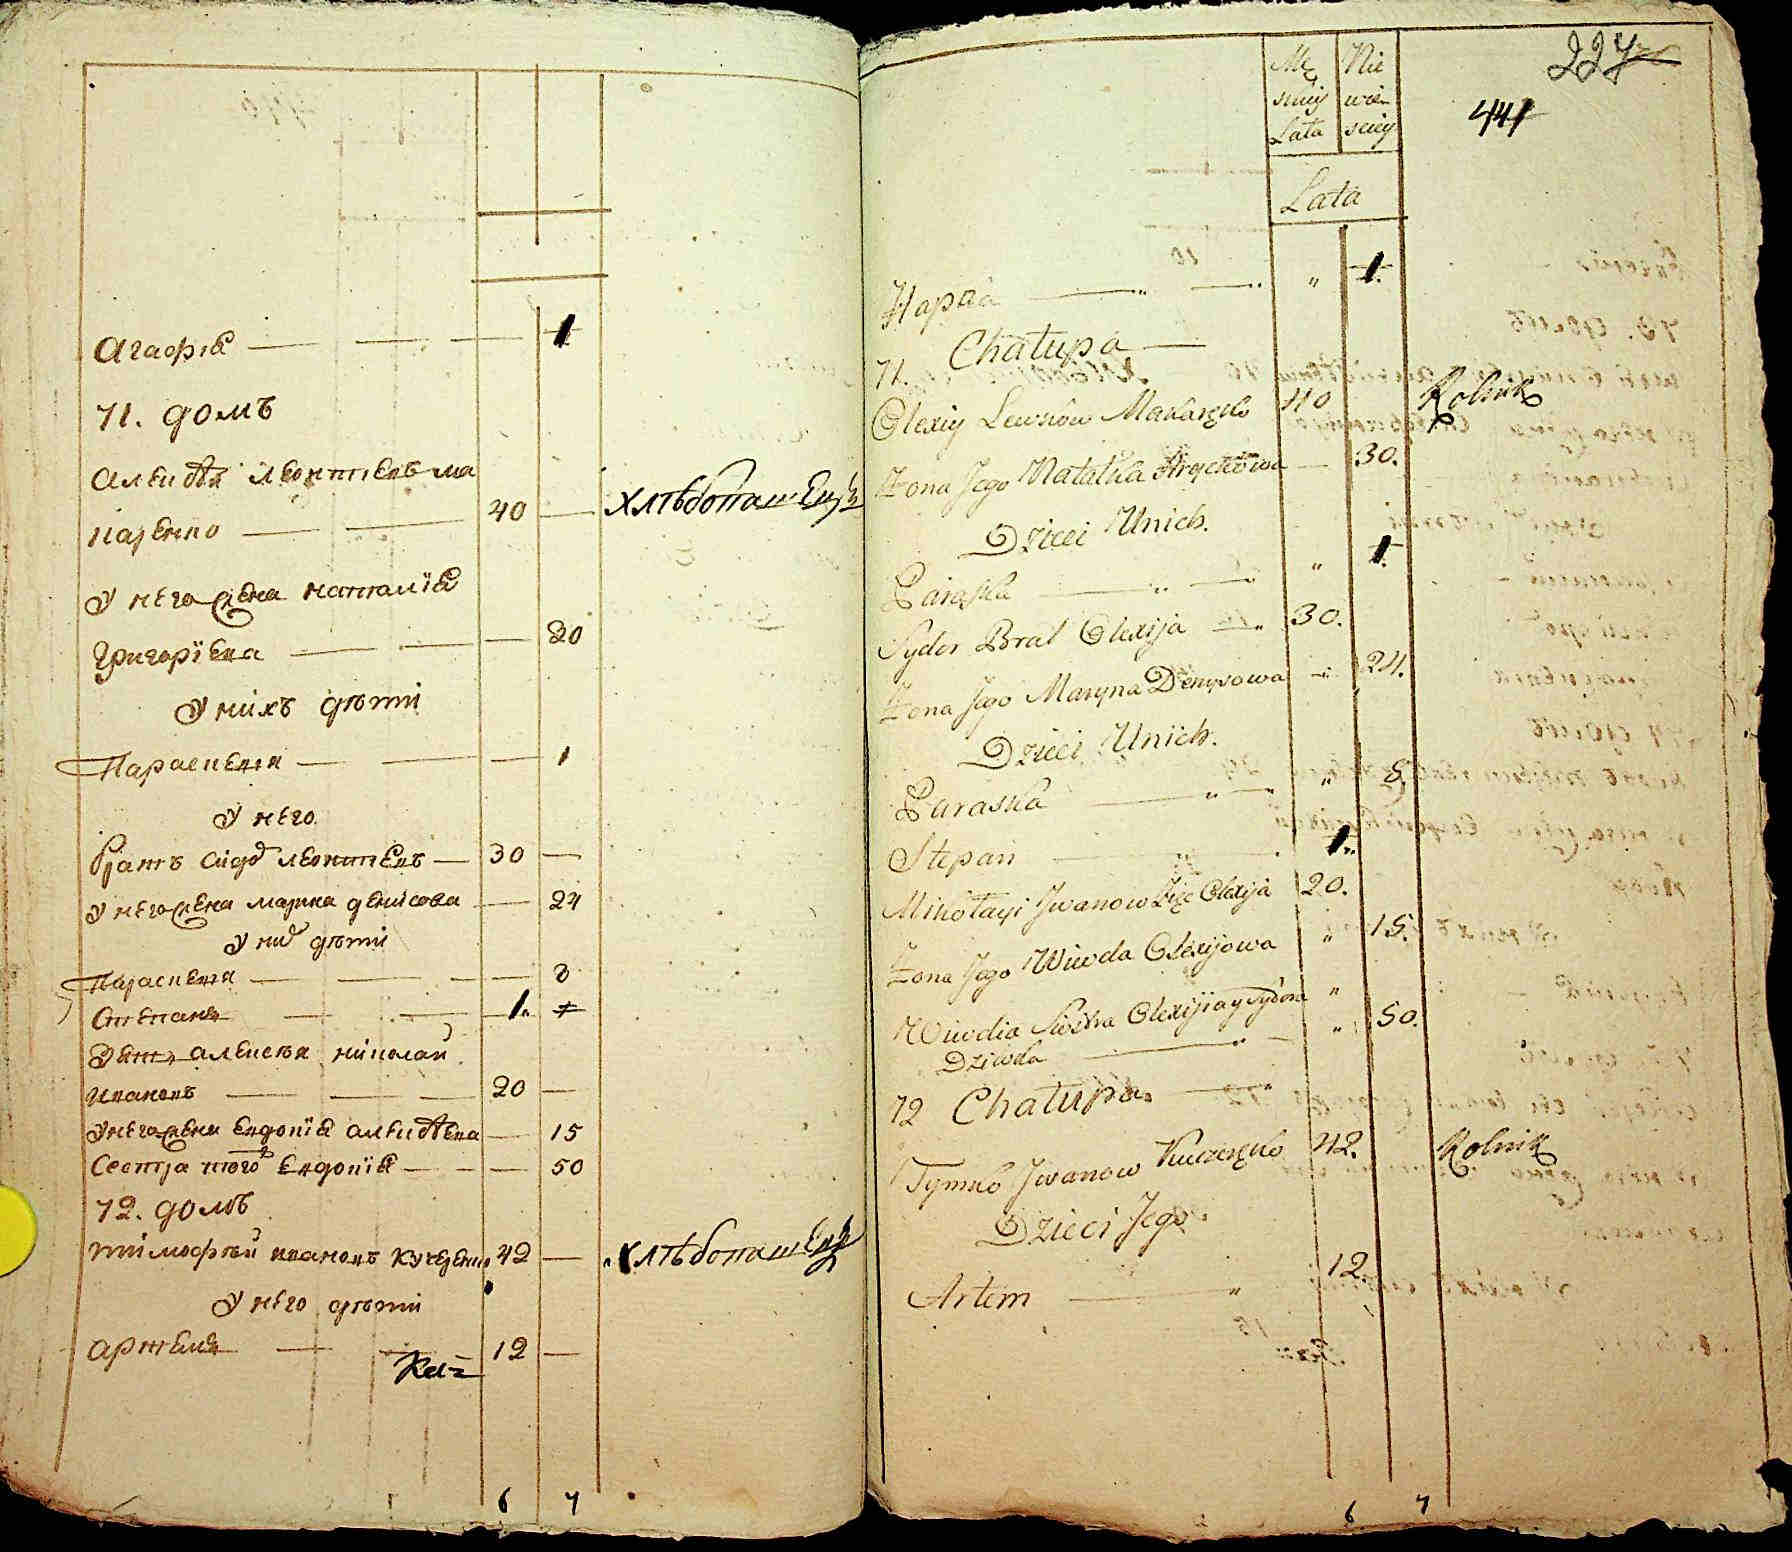 Агафія 1
71. домъ
Алексѣй Леонтіевъ Ма
каренко 40 хлѣбопашецъ
У него жена Наталія
Григоріева 30
У нихъ дѣти
Параскевія 1
У него
Братъ Сидоръ Леонтіевъ 30
У него жена Марина Денисова 24
У нихъ дѣти
Параскевія 8
Степанъ 1
Зять Алексѣя Николай
Ивановъ 20
У него жена Евдокія Алексѣева 15
Сестра того Евдокія 50
72. домъ
Тимофѣй Ивановъ Кучеренко 42 хлѣбопашецъ
У него дѣти
Артемій 12
6 7
227
441
Mę Nie
skiey wie
Lata sciey
Lata
" 1
Chałupa
71.
Olexiy Lewkow Makarenko 40 Rolnik
Żona Jego Natałka Hryckowa 30.
Dzieci Unich.
Paraska " 1
Sydor Brat Olexija 30.
Żona Jego Maryna Denysowa 24.
Dzieci Unich.
Paraska " 8
Stepan 1
Mikołayi Jwanow Zięć Olexija 20.
Żona Jego Wiwda Olexijowa " 15.
Wiwdia Siostra Olexija y Sydora "
Dziwka " 50.
72 Chałupa.
Tymko Jwanow Kuczerenko 42. Rolnik
Dzieci Jego
Artem 12.
6 7